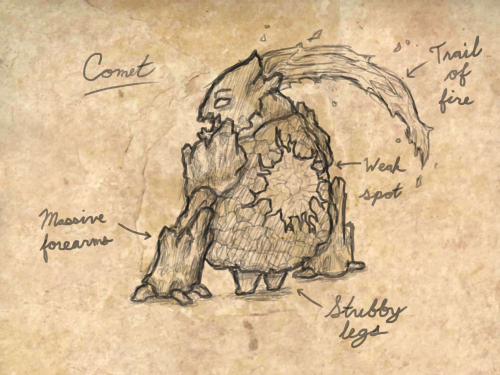 Comet
Trail
of
fire
Weak
spot
Massive
forearms
Stubby
legs